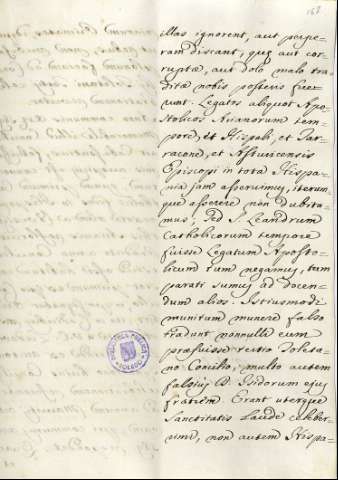 illas ignorent, aut perpe-
ram discant, quę aut cor-
ruptæ, aut dolo malo tra-
ditæ nobis posteris fue-
runt. Legatos aliquot Apo-
stolicos Arianorum tem-
pore, et Hispali, et Tar-
racone, et Asturicensis
Episcopi in tota Hispa-
nia jam asseruimus, iterum
que asserere non dubita-
mus; sed S. Leandrum
Catholicorum tempore
fuisse Legatum Aposto-
licum tum negamus, tum
parati sumus ad docen-
dum alios. Istiusmodi
munitum munere falso
tradunt nonnulli eum
præfuisse tertio Toleta-
no Concilio; multo autem
falsius D. Isidorum ejus
fratrem. Erant uterque
Sanctitatis Laude celeber-
rimi, non autem Hispa-
BIBLIOTECA PUBLICA
TOLEDO